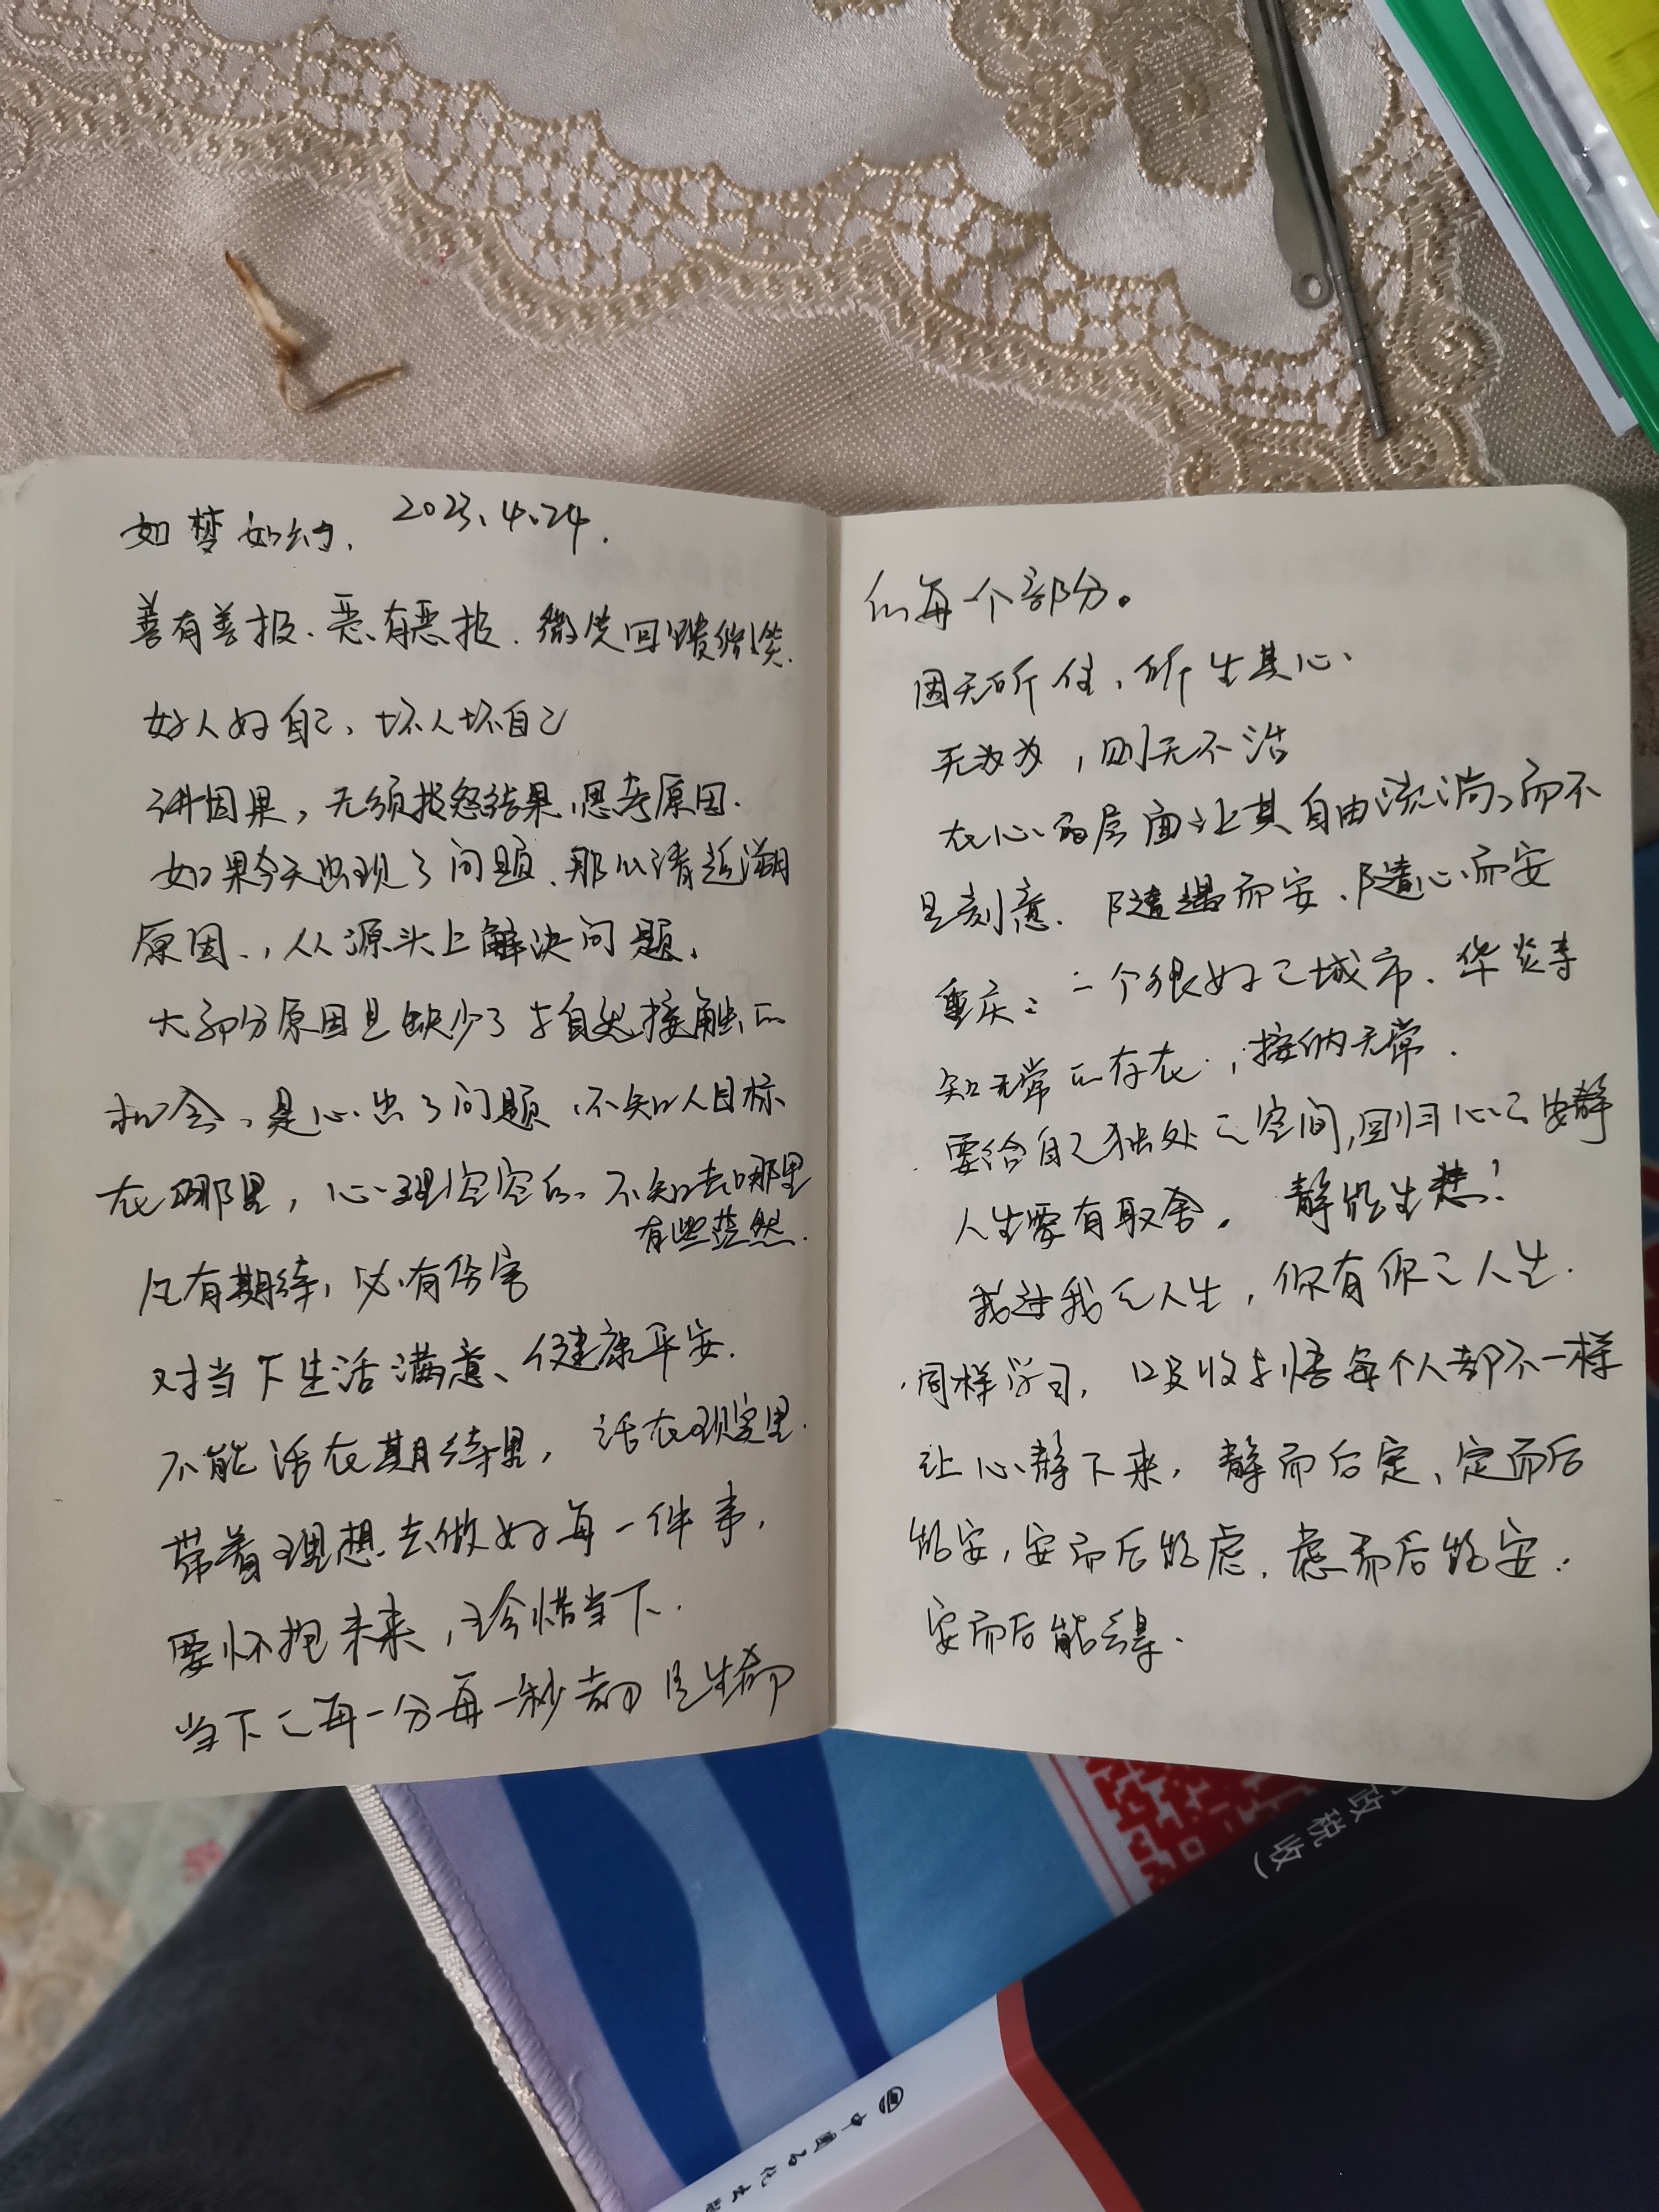 如梦如幻、 2023.4.24.
善有善报、恶有恶报、微笑回馈微笑.
好人好自己、坏人坏自己
讲因果，无须抱怨结果，思考原因.
如果今天出现了问题、那么请追溯
原因、，从源头上解决问题、
大部分原因是缺少了与自然接触的
机会、是心出了问题、不知人目标
在哪里，心理空空的、不知去哪里
有些茫然.
凡有期待，必有伤害
对当下生活满意、健康平安.
不能活在期待里，活在现实里.
带着理想去做好每一件事，
要怀抱未来，珍惜当下.
当下之每一分每一秒都是生命
的每个部分。
因无所住，所生其心、
无为为，则无不治
在心的层面让其自由流淌、而不
是刻意. 随遇而安、随心而安
重庆：一个很好之城市、华炎寺
知无常的存在，接纳无常.
要给自己独处之空间，回归心之安静
人生要有取舍。 静能生慧！
我过我之人生，你有你之人生.
同样学习，吸收与悟每个人都不一样
让心静下来，静而后定、定而后
能安，安而后能虑，虑而后能安.
安而后能得.
政税收）
中国石化出版